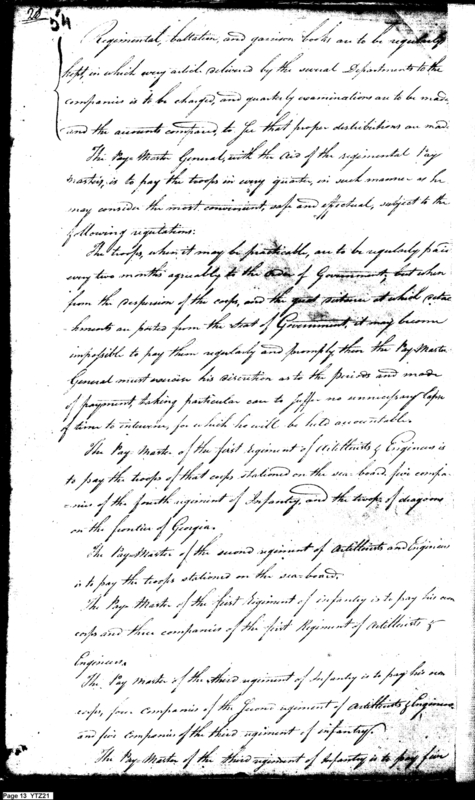 20 54
Regimental, battalion, and garrison books are to be regularly
kept, in which every article delivered by the several Departments to the
companies is to be charged, and quarterly examinations are to be made,
and the accounts compared, to see that proper distributions are made.
The Pay Master General, with the aid of the regimental Pay
Masters, is to pay the troops in every quarter, in such manner as he
may consider the most convenient, safe and effectual, subject to the
following regulations:
The troops, when it may be practicable, are to be regularly paid
every two months agreeably to the order of Government, but when
from the dispersion of the corps, and the great distance at which detach
hments are posted from the Seat of Government, it may become
impossible to pay them regularly and promptly then the Pay Master
General must exercise his discretion as to the periods and mode
of payment, taking particular care to suffer no unnecessary lapse
of time to intervene, for which he will be held accountable.
The Pay Master of the first regiment of Artillerists & Engineers is
to pay the troops of that corps stationed on the sea-board five compa-
nies of the fourth regiment of Infantry, and the troops of dragoons
on the frontier of Georgia.
The Pay-Master of the second regiment of Artillerists and Engineers
is to pay the troops stationed on the sea-board.
The Pay Master of the first Regiment of infantry is to pay his own
corps and three companies of the first Regiment of Artillerists &
Engineers.
The Pay Master of the third regiment of Infantry is to pay his own
corps, four companies of the second regiment of Artillerists & Engineers
and five companies of the third regiment of infantry.
The Pay Master of the third regiment of Infantry is to pay five
Page 13 YTZ21